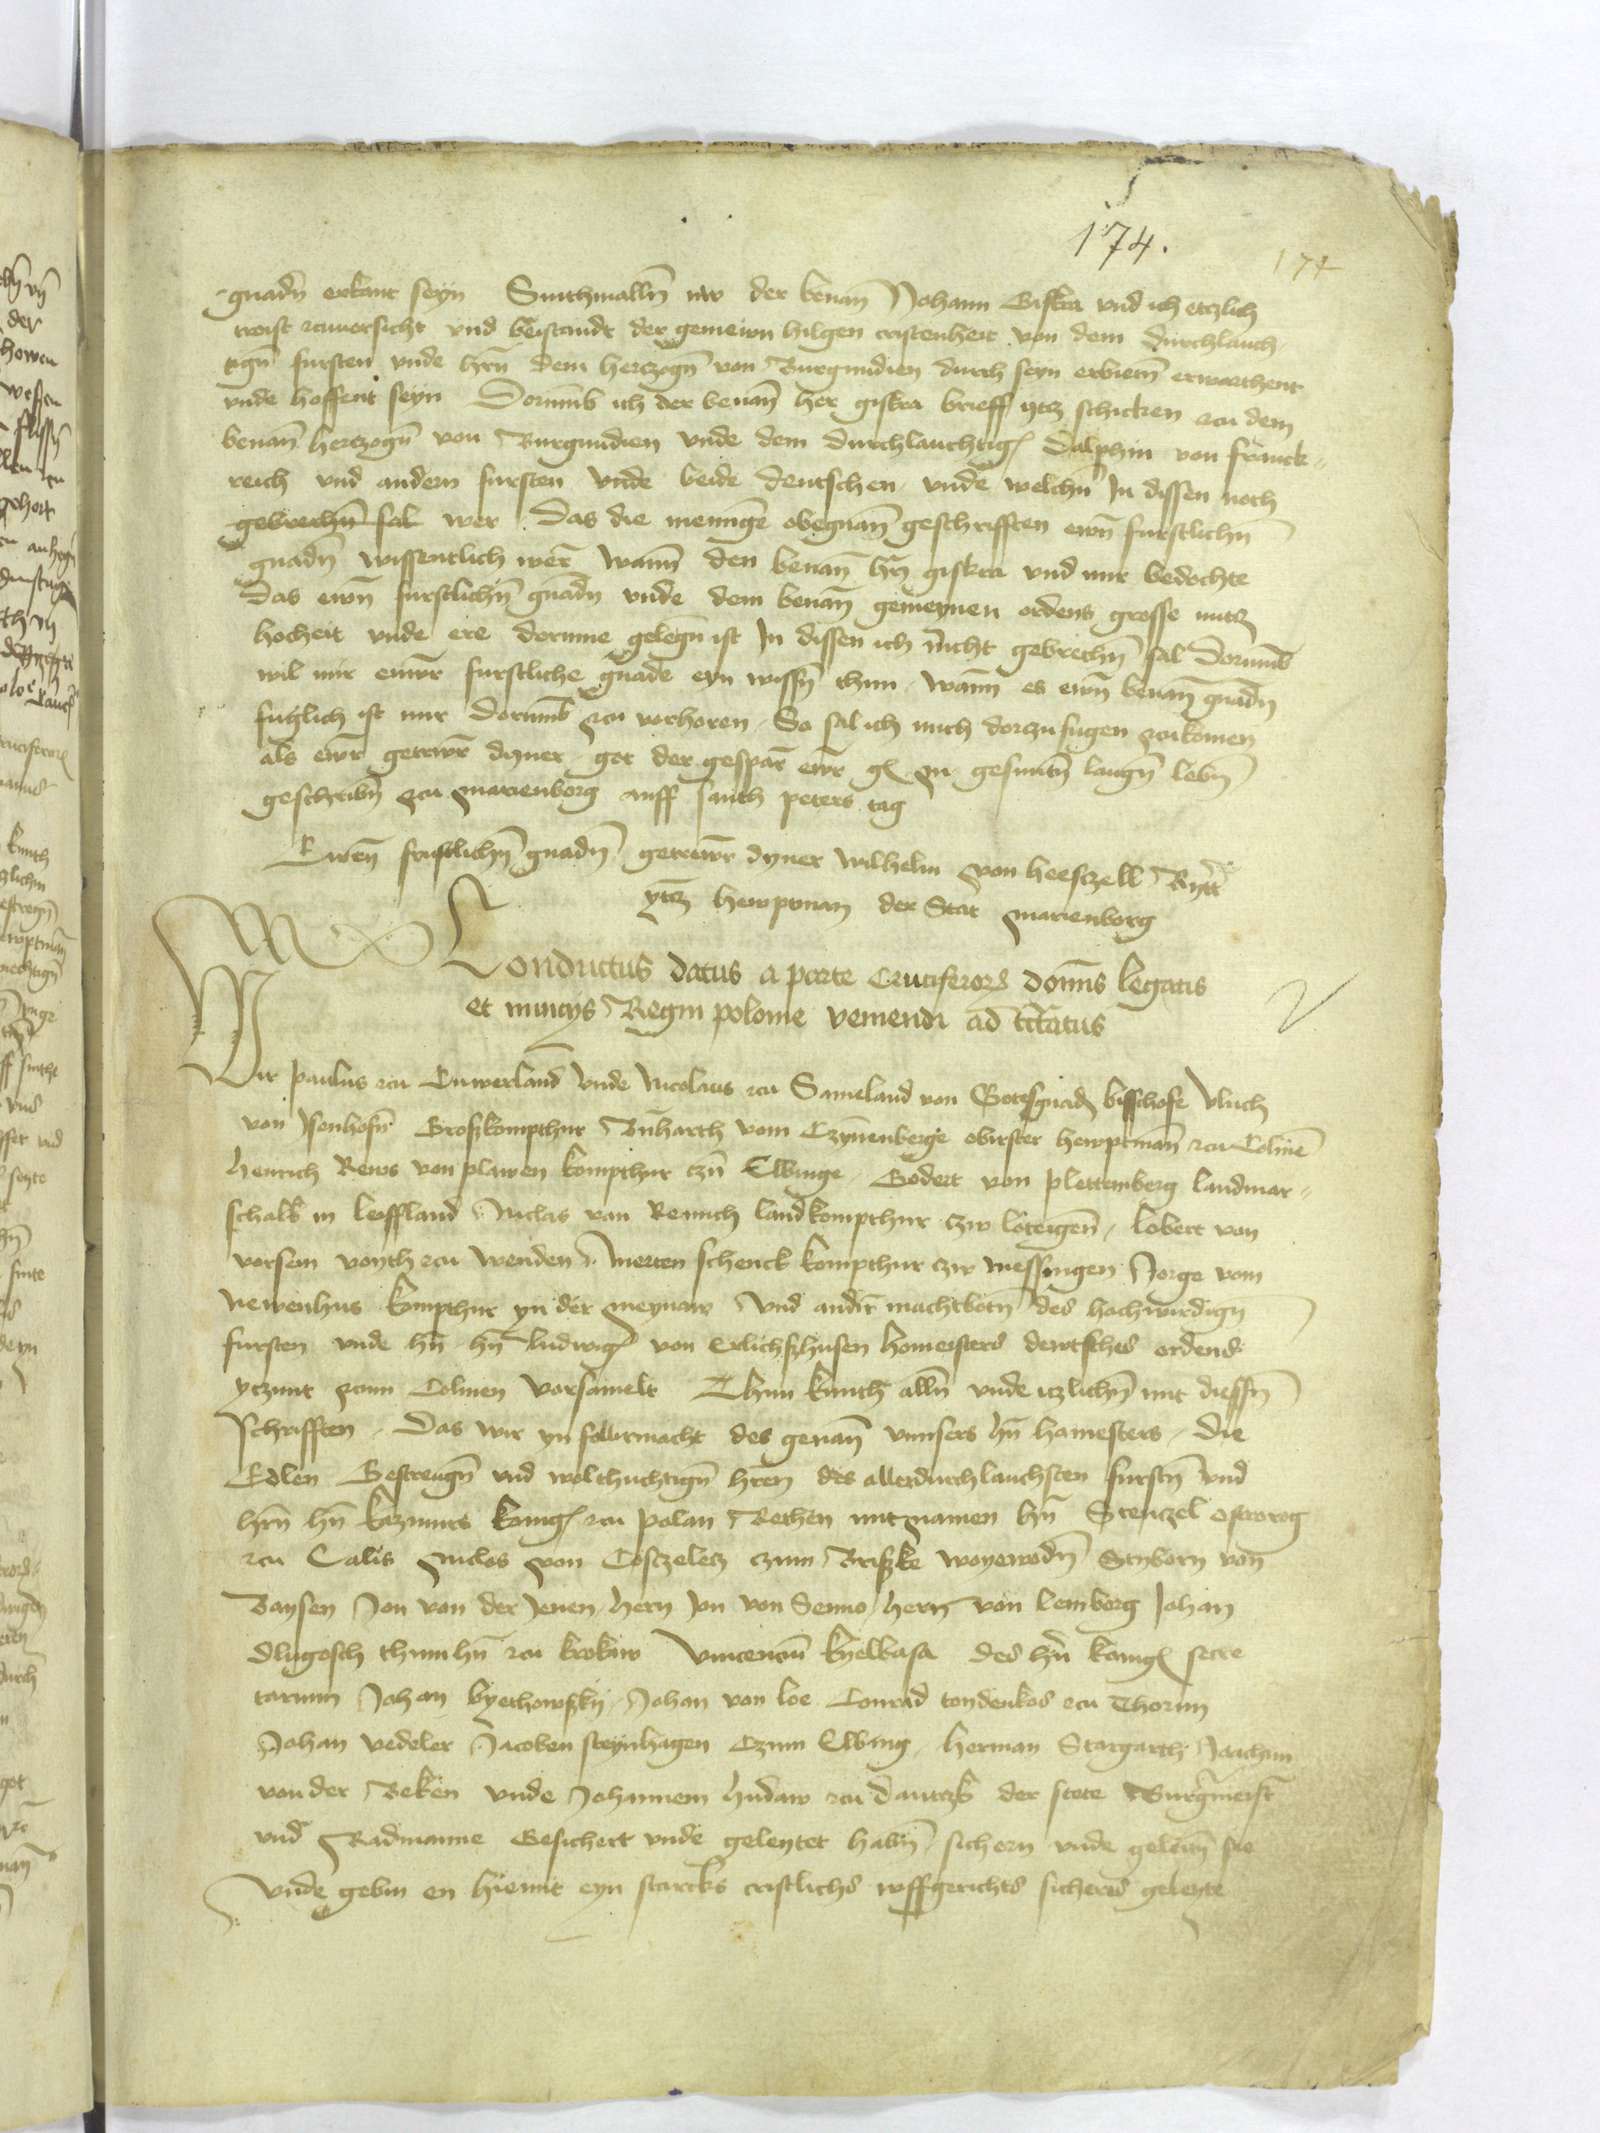 174.
174
gnadn̄ erkant seyn Sinthmalln̄ nw der benan̄ Johann Giskra vnd ich etzlich
troist zcuuorsicht vnd beistandt der gemeinn hilgen cristenheit von dem durchlauch-
tign̄ fursten vnde hrn̄ dem hertzogn̄ von Burgundien durch seyn erbietn̄ erwarthent
vnde hoffent seyn Dorumb ich der benan̄ her giskra brieff ytz schicken zcu dem
benan̄ hertzogn̄ von Burgundien vnde dem durchlauchtig Dalphin von franck-
reich vnd andern fursten vnde beide deutschen vnde welchn̄ In dissen noch
gebrechn̄ sal wer Das die menunge obegnan̄ geschrifften ewn̄ furstlichn̄
gnadn̄ wissentlich wer wann den benan̄ hrn̄ giskra vnd mir bedochte
Das ewn̄ furstlichn̄ gnadn̄ vnde dem benan̄ gemeynen ordens grosse nutz
hocheit vnde ere dorinne gelegn̄ ist In dissen ich nicht gebrechn̄ sal Dorumb
wil mir ewer furstliche gnade eyn wissn̄ thun wann es ewn̄ benan̄ gnadn̄
fuglich ist mir dorumb zcu vorhoren So sal ich mich dorzu fugen zcukomen
als ewr getrwr dyner got der gespar ewr g in gesuntn̄ langn̄ lebn̄
geschribn̄ zcu marienborg auff santh peters tag
Ewrn̄ frustlichn̄ gnadn̄ getrwr dyner wilhelm von heesczell Rytt
ytz hewptman der Stat marienborg
Conductus datus a parte Cruciferorum dominis legatis
et nuncys Regni polonie veniendi ad tractatus
Wir paulus zcu Cuwerland vnde Nicolaus zcu Sameland von Gotsgnad bisschofe Vlrich
von Isenhofn̄ Groszkompthur Bnharth vom Czynnenberge obirster hewptman zcu Colmen
henrich Rews von plawen kompthur czn̄ Elbinge Godert von plettemberg landmar-
schalk in leiffland Niclas van Remich landkompthur czw loteigen̄ lobert von
vorsem voyth zcu wenden Merten schenck kompthur czw messingen Jorge vom
Newenhus kompthur yn der meynaw vnd andr̄ machtbotn̄ des hochwirdign̄
fursten vnde hn̄ hn̄ ludwig von Erlichszhusen homeisters dewtsches ordens
yczunt zcum Colmen vorsamelt Thun kunth alln̄ vnde itzlichn̄ mit diessn̄
schrifften Das wir yn folbirmacht des genan̄ vnnsers hn̄ homesters die
Edlen Gestrengn̄ vnd wolthuchtign̄ hren des allerdurchlauchsten furstn̄ vnd
hrn̄ hn̄ kazimirs konig zcu polan Rethen mit namen hn̄ Stenczel ostrorog
zcu Calis Niclos von Cosczelecz czum Briszke woyewodn̄ Styborn von
Baysen Jon von der Jenen hern Jon von Senno hern von lemborg Johan
dlugosch thumhn̄ zcu krokaw Vincencium kyelbasa des hn̄ konig secre
tarium Johan byethowszky Johan von loe Conrad tewdenkos zcu Thorun
Johan vedeler Jacoben steynhagen Czum Elbing herman Stargarth Joachim
von der Beken vnde Johannem hudaw zcu dantczk der stete Burgmeistr̄
vnd Radmanne Gesichert vnde geleytet habn̄ sichern vnde geleitn̄ sie
Vnde gebin en hiemit eyn starcks cristlichs wffgerichts sichers geleyte